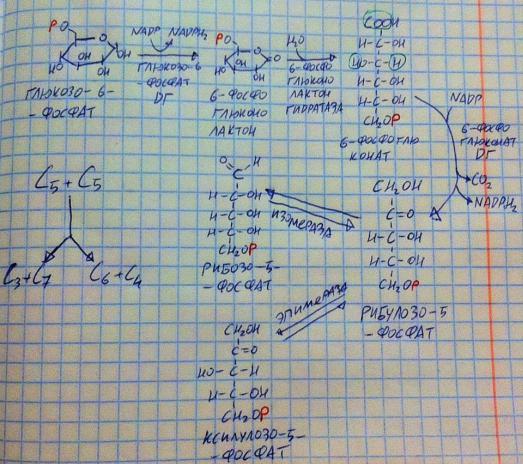 PO
O
OH
OH
HO
OH
ГЛЮКОЗО-6-
-ФОСФАТ
NADP NADPH₂
ГЛЮКОЗО-6
-ФОСФАТ
ДГ
PO
O
O
OH
HO
OH
6-ФОСФО
ГЛЮКОНО
ЛАКТОН
H₂O
6-ФОСФО
ГЛЮКОНО
ЛАКТОН
ГИДРАТАЗА
COOH
H-C-OH
HO-C-H
H-C-OH
H-C-OH
CH₂OP
6-ФОСФОГЛЮ
КОНАТ
NADP
6-ФОСФО
ГЛЮКОНАТ
ДГ
CO₂
NADPH₂
CH₂OH
C=O
H-C-OH
H-C-OH
CH₂OP
РИБУЛОЗО-5
-ФОСФАТ
ИЗОМЕРАЗА
O H
C
H-C-OH
H-C-OH
H-C-OH
CH₂OP
РИБОЗО-5-
-ФОСФАТ
ЭПИМЕРАЗА
CH₂OH
C=O
HO-C-H
H-C-OH
CH₂OP
КСИЛУЛОЗО-5-
-ФОСФАТ
C₅+C₅
C₃+C₇
C₆+C₄